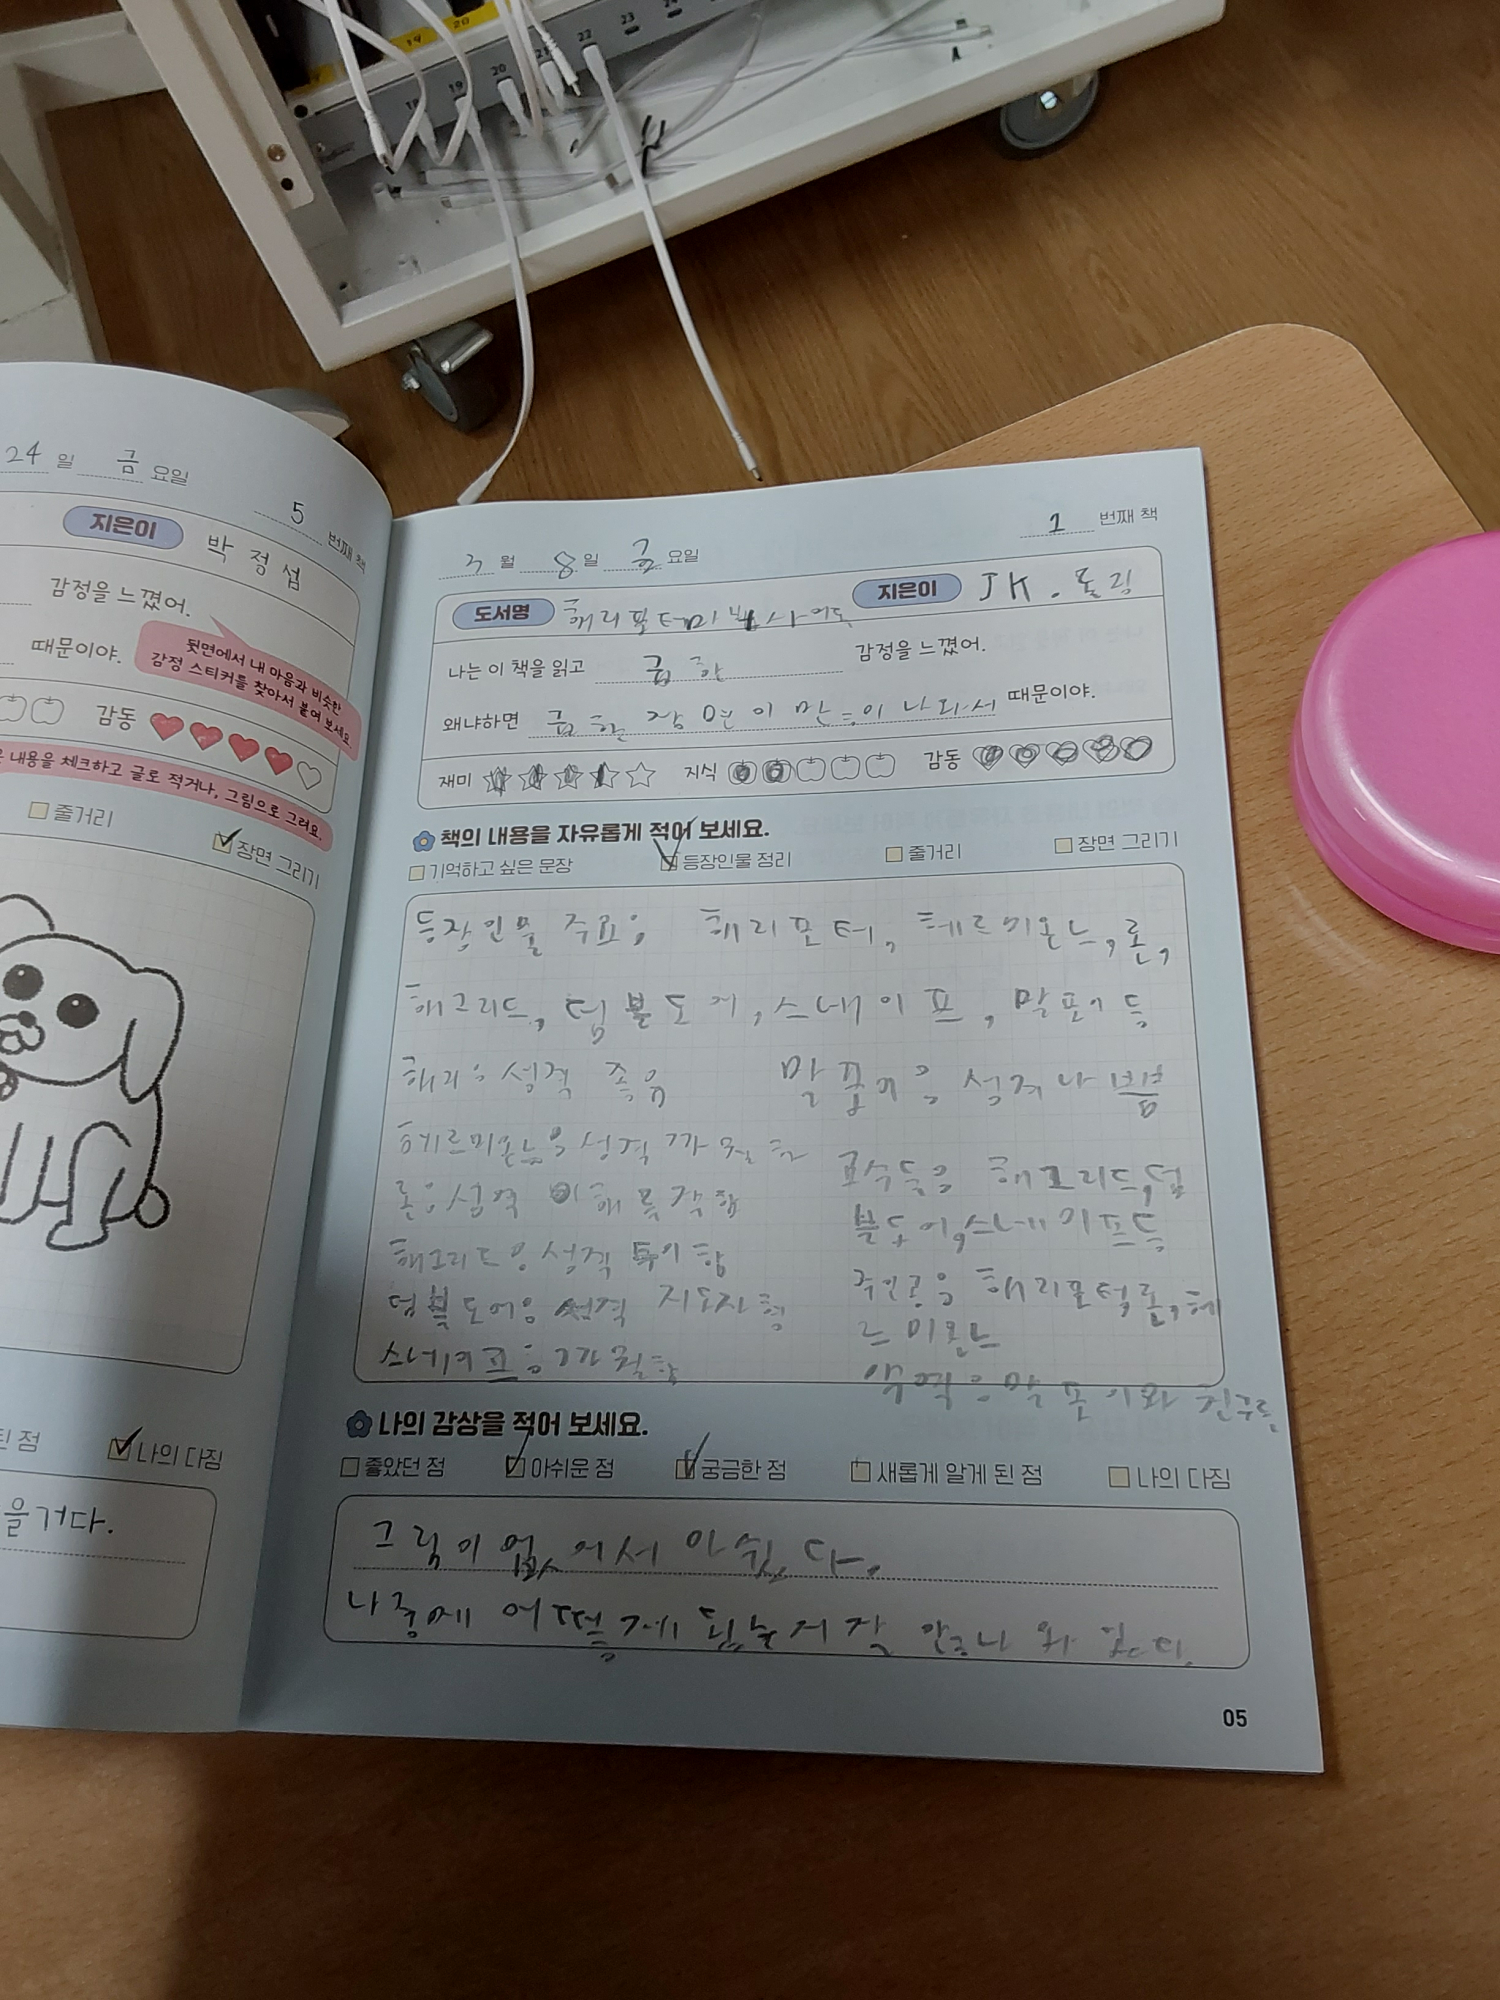 24 일 금 요일
5 번째 책
지은이 박정섭
감정을 느꼈어.
때문이야.
뒷면에서 내 마음과 비슷한
감정 스티커를 찾아서 붙여 보세요.
감동
내용을 체크하고 글로 적거나, 그림으로 그려요.
줄거리
장면 그리기
된 점
나의 다짐
을거다.
18 19 20 21 22 23 24
19 20
1 번째 책
3 월 8 일 금 요일
도서명 해리포터 지은이 JK.롤링
나는 이 책을 읽고 급한 감정을 느꼈어.
왜냐하면 급한 장면이 많이 나와서 때문이야.
재미 지식 감동
책의 내용을 자유롭게 적어 보세요.
기억하고 싶은 문장 등장인물 정리 줄거리 장면 그리기
등장인물 주요: 해리포터, 헤르미온느, 론,
해그리드, 덤블도어, 스네이프, 말포이 등
해리: 성격 좋음
말포이은 성격 나쁨
헤르미온느은 성격 까칠함
론은 성격
해그리드은 성격
덤블도어은 성격 지도자형
스네이프은 까칠함
교수들은 해그리드, 덤
블도어, 스네이프등
주인공은 해리포터, 론, 헤
르미온느
악역은 말포이와 친구들
나의 감상을 적어 보세요.
좋았던 점 아쉬운 점 궁금한 점 새롭게 알게 된 점 나의 다짐
그림이 없어서 아쉽다.
나중에
05